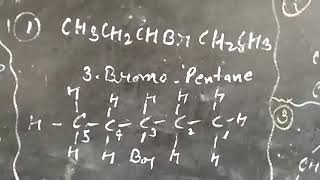 ① CH3CH2CHBr CH2CH3
3. Bromo - Pentane
H H H H H
H - C - C - C - C - C - H
5 4 3 2 1
H H Br H H
③